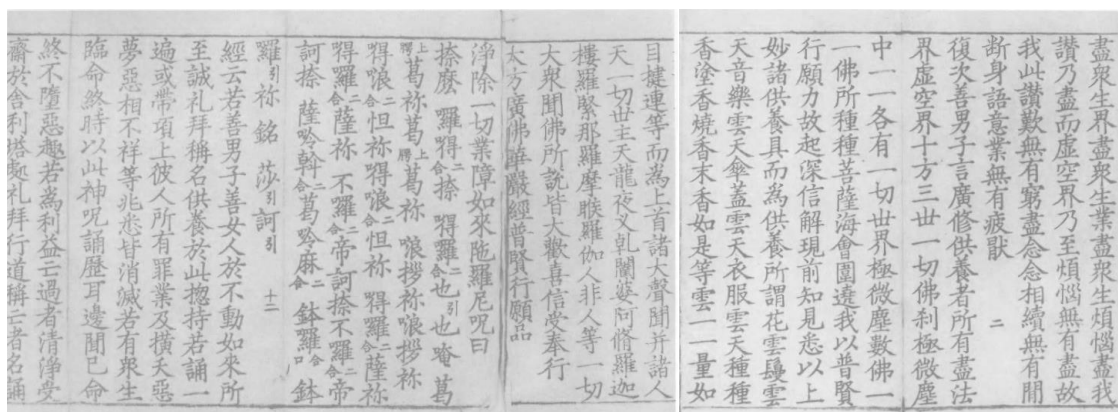 盡衆生界盡衆生業盡衆生煩惱盡我
讃乃盡而虛空界乃至煩惱無有盡故
我此讃歎無有窮盡念念相續無有間
断身語意業無有疲猒 二
復次善男子言廣修供養者所有盡法
界虛空界十方三世一切佛刹極微塵
中一一各有一切世界極微塵數佛一
一佛所種種菩薩海會圍遶我以普賢
行願力故起深信解現前知見悉以上
妙諸供養具而為供養所謂花雲鬘雲
天音樂雲天傘盖雲天衣服雲天種種
香塗香燒香末香如是等雲一一量如
目揵連等而為上首諸大聲聞并諸人
天一切世主天龍夜叉乹闥婆阿脩羅迦
樓羅緊那羅摩睺羅伽人非人等一切
大衆聞佛所說皆大歡喜信受奉行
大方廣佛華嚴經普賢行願品
淨除一切業障如來陁羅尼呪曰
捺麽 羅㘁二合捺 㘁羅二合也引也唵葛
上腭葛祢葛上腭葛祢 㘄拶祢㘄拶祢
㘁㘄二合怛祢㘁㘄二合怛祢 㘁羅二合薩祢
㘁羅二合薩祢 不羅二合帝訶捺不羅二合帝
訶捺 薩吟斡二合葛吟麻二合 鉢羅二合口 鉢
羅引祢 銘 莎引訶引 十二
經云若善男子善女人於不動如來所
至誠礼拜稱名供養於此揔持若誦一
遍或帶項上彼人所有罪業及橫夭惡
夢惡相不祥等兆悉皆消滅若有衆生
臨命終時以此神呪誦歷耳邊聞已命
終不墮惡趣若為利益亡過者清淨受
齋於舍利塔處礼拜行道稱亡者名誦